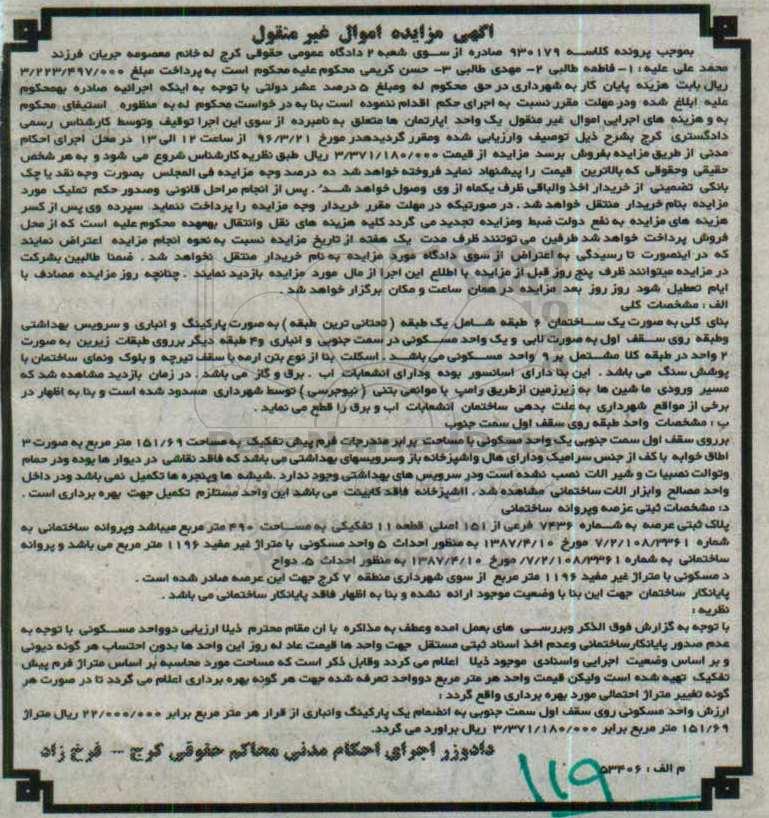 آگهی مزایده اموال غیر منقول
بموجب پرونده کلاسه ۹۳۰۱۷۹ صادره از سوی شعبه ۲ دادگاه عمومی حقوقی کرج له خانم معصومه جریان فرزند
محمد علی علیه : ۱- فاطمه طالبی ۲- مهدی طالبی ۳- حسن کریمی محکوم علیه محکوم است به پرداخت مبلغ ۳/۲۲۳/۴۹۷/۰۰۰
ریال بابت هزینه پایان کار به شهرداری در حق محکوم له ومبلغ ۵ درصد عشر دولتی با توجه به اینکه اجرائیه صادره بهمحکوم
علیه ابلاغ شده ودر مهلت مقرر نسبت به اجرای حکم اقدام ننموده است بنا به در خواست محکوم له به منظوره استیفای محکوم
به و هزینه های اجرایی اموال غیر منقول یک واحد اپارتمان ها متعلق به نامبرده از سوی این اجرا توقیف وتوسط کارشناس رسمی
دادگستری کرج بشرح ذیل توصیف وارزیابی شده ومقرر گردیدهدر مورخ ۹۶/۳/۲۱ از ساعت ۱۲ الی ۱۳ در محل اجرای احکام
مدنی از طریق مزایده بفروش برسد مزایده از قیمت ۳/۳۷۱/۱۸۰/۰۰۰ ریال طبق نظریه کارشناس شروع می شود و به هر شخص
حقیقی وحقوقی که بالاترین قیمت را پیشنهاد نماید فروخته خواهد شد ده درصد وجه مزایده فی المجلس بصورت وجه نقد یا چک
بانکی تضمینی از خریدار اخذ والباقی ظرف یکماه از وی وصول خواهد شد . پس از انجام مراحل قانونی وصدور حکم تملیک مورد
مزایده بنام خریدار منتقل خواهد شد . در صورتیکه در مهلت مقرر خریدار وجه مزایده را پرداخت ننماید سپرده وی پس از کسر
هزینه های مزایده به نفع دولت ضبط ومزایده تجدید می گردد کلیه هزینه های نقل وانتقال بهعهده محکوم علیه است که از محل
فروش پرداخت خواهد شد طرفین می توتنند ظرف مدت یک هفته از تاریخ مزایده نسبت به نحوه انجام مزایده اعتراض نمایند
که در اینصورت تا رسیدگی به اعتراض از سوی دادگاه مورد مزایده به نام خریدار منتقل نخواهد شد . ضمنا طالبین بشرکت
در مزایده میتوانند ظرف پنج روز قبل از مزایده با اطلاع این اجرا از مال مورد مزایده بازدید نمایند . چنانچه روز مزایده مصادف با
ایام تعطیل شود روز روز بعد مزایده در همان ساعت و مکان برگزار خواهد شد .
الف : مشخصات کلی
بنای کلی به صورت یک ساختمان ۶ طبقه شامل یک طبقه ( تحتانی ترین طبقه ) به صورت پارکینگ و انباری و سرویس بهداشتی
وطبقه روی سقف اول به صورت لابی و یک واحد مسکونی در سمت جنوبی و انباری و۴ طبقه دیگر برروی طبقات زیرین به صورت
۲ واحد در طبقه کلا مشتمل بر ۹ واحد مسکونی می باشد . اسکلت بنا از نوع بتن ارمه با سقف تیرچه و بلوک ونمای ساختمان با
پوشش سنگ می باشد . این بنا دارای اسانسور بوده ودارای انشعابات اب . برق و گاز می باشد . در زمان بازدید مشاهده شد که
مسیر ورودی ما شین ها به زیرزمین ازطریق رامپ با موانعی بتنی ( نیوجرسی ) توسط شهرداری مسدود شده است و بنا به اظهار در
برخی از مواقع شهرداری به علت بدهی ساختمان انشعابات اب و برق را قطع می نماید .
ب : مشخصات واحد طبقه روی سقف اول سمت جنوب
برروی سقف اول سمت جنوبی یک واحد مسکونی با مساحت برابر مندرجات فرم پیش تفکیک به مساحت ۱۵۱/۶۹ متر مربع به صورت ۳
اطاق خوابه با کف از جنس سرامیک ودارای هال واشپزخانه باز وسرویسهای بهداشتی می باشد که فاقد نقاشی در دیوار ها بوده ودر حمام
وتوالت نصبیات و شیر الات نصب نشده است ودر سرویس های بهداشتی وجود ندارد .شیشه ها وپنجره ها تکمیل نمی باشد ودر داخل
واحد مصالح وابزار الات ساختمانی مشاهده شد . ااشپزخانه فاقد کابینت می باشد این واحد مستلزم تکمیل جهت بهره برداری است .
د: مشخصات ثبتی عرصه وپروانه ساختمانی
پلاک ثبتی عرصه به شماره ۷۴۳۶ فرعی از ۱۵۱ اصلی قطعه ۱۱ تفکیکی به مساحت ۴۹۰ متر مربع میباشد وپروانه ساختمانی به
شماره ۷/۲/۱۰۸/۳۳۶۱ مورخ ۱۳۸۷/۴/۱۰ به منظور احداث ۵ واحد مسکونی با متراژ غیر مفید ۱۱۹۶ متر مربع می باشد و پروانه
ساختمانی به شماره ۷/۲/۱۰۸/۳۳۶۱/ مورخ ۱۳۸۷/۴/۱۰ به منظور احداث ۵. دواح
د مسکونی با متراژ غیر مفید ۱۱۹۶ متر مربع از سوی شهرداری منطقه ۷ کرج جهت این عرصه صادر شده است .
پایانکار ساختمان جهت این بنا با وضعیت موجود ارائه نشده و بنا به اظهار فاقد پایانکار ساختمانی می باشد .
نظریه :
با توجه به گزارش فوق الذکر وبررسی های بعمل امده وعطف به مذاکره با ان مقام محترم ذیلا ارزیابی دوواحد مسکونی با توجه به
عدم صدور پایانکارساختمانی وعدم اخذ اسناد ثبتی مستقل جهت واحد ها قیمت عاد له روز این واحد ها بدون احتساب هر گونه دیونی
و بر اساس وضعیت اجرایی واسنادی موجود ذیلا اعلام می گردد وقابل ذکر است که مساحت مورد محاسبه بر اساس متراژ فرم پیش
تفکیک تهیه شده است ولیکن قیمت واحد هر متر مربع دوواحد تعرفه شده جهت هر گونه بهره برداری اعلام می گردد تا در صورت هر
گونه تغییر متراژ احتمالی مورد بهره برداری واقع گردد :
ارزش واحد مسکونی روی سقف اول سمت جنوبی به انضمام یک پارکینگ وانباری از قرار هر متر مربع برابر ۲۲/۰۰۰/۰۰۰ ریال متراژ
۱۵۱/۶۹ متر مربع برابر ۳/۳۷۱/۱۸۰/۰۰۰ ریال براورد می گردد.
دادورز اجرای احکام مدنی محاکم حقوقی کرج -- فرخ زاد
م الف : ۵۳۴۰۶
۱۱۹